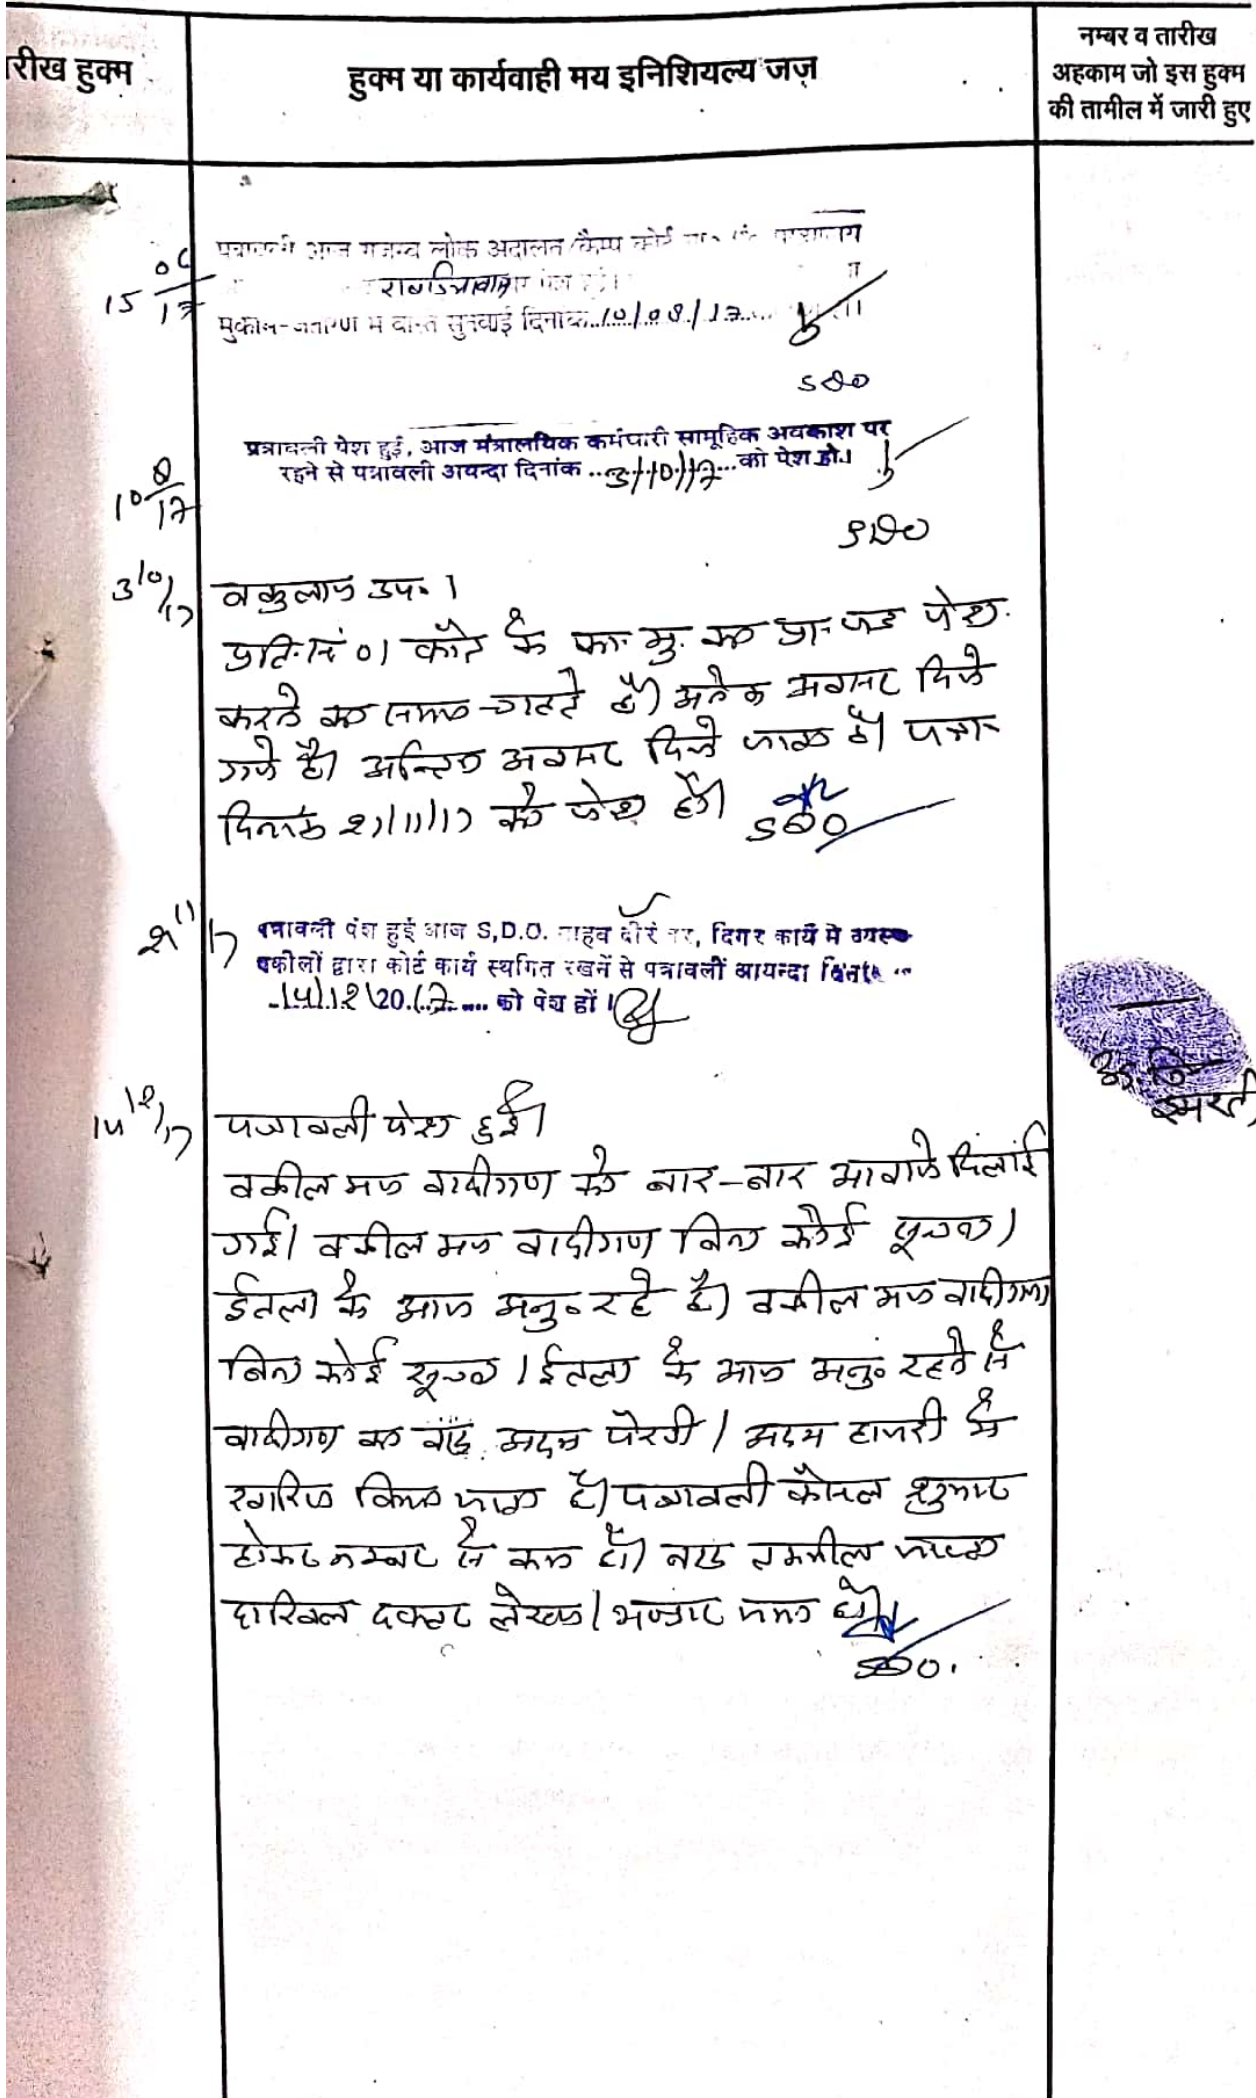 रीख हुक्म
हुक्म या कार्यवाही मय इनिशियल्य जज़
नम्बर व तारीख
अहकाम जो इस हुक्म
की तामील में जारी हुए
15 06/17
पत्रावली आज राजस्व लोक अदालत/कैम्प कोर्ट
पेश हुई।
सुनवाई दिनांक..10/08/17....
SDO
10 8/17
पत्रावली पेश हुई, आज मंत्रालयिक कर्मचारी सामूहिक अवकाश पर
रहने से पत्रावली अयन्दा दिनांक ..3/10/17...को पेश हो।
SDO
3 10/17
वकुलाय उप.।
प्रति.सं 01 के का. मु. का प्रा. पत्र पेश
करने का समय चाहते है। अनेक अवसर दिये
गये है। अन्तिम अवसर दिये जाता है। पत्रा.
दिनांक 21/11/17 को पेश हो।
SDO
21 11/17
पत्रावली पेश हुई आज S.D.O. साहब दौरे पर, दिगर कार्य मे व्यस्त
वकीलों द्वारा कोर्ट कार्य स्थगित रखनें से पत्रावलीं आयन्दा दिनांक ...
.14/12/2017.... को पेश हों।
14 12/17
पत्रावली पेश हुई।
वकील मय वादीगण को बार-बार आवाजे दिलाई
गई। वकील मय वादीगण बिना कोई सूचना/
ईतला के आज अनु० रहे है। वकील मय वादीगण
बिना कोई सूचना/ईतला के आज अनु० रहने से
वादीगण का वाद अदम पैरवी/अदम हाजरी मे
खारिज किया जाता है। पत्रावली फैसल शुमार
होकर नम्बर से कम हो। बाद तकमील जाब्ता
दाखिल दफ्तर लेख्य/भण्डार हो।
SDO.